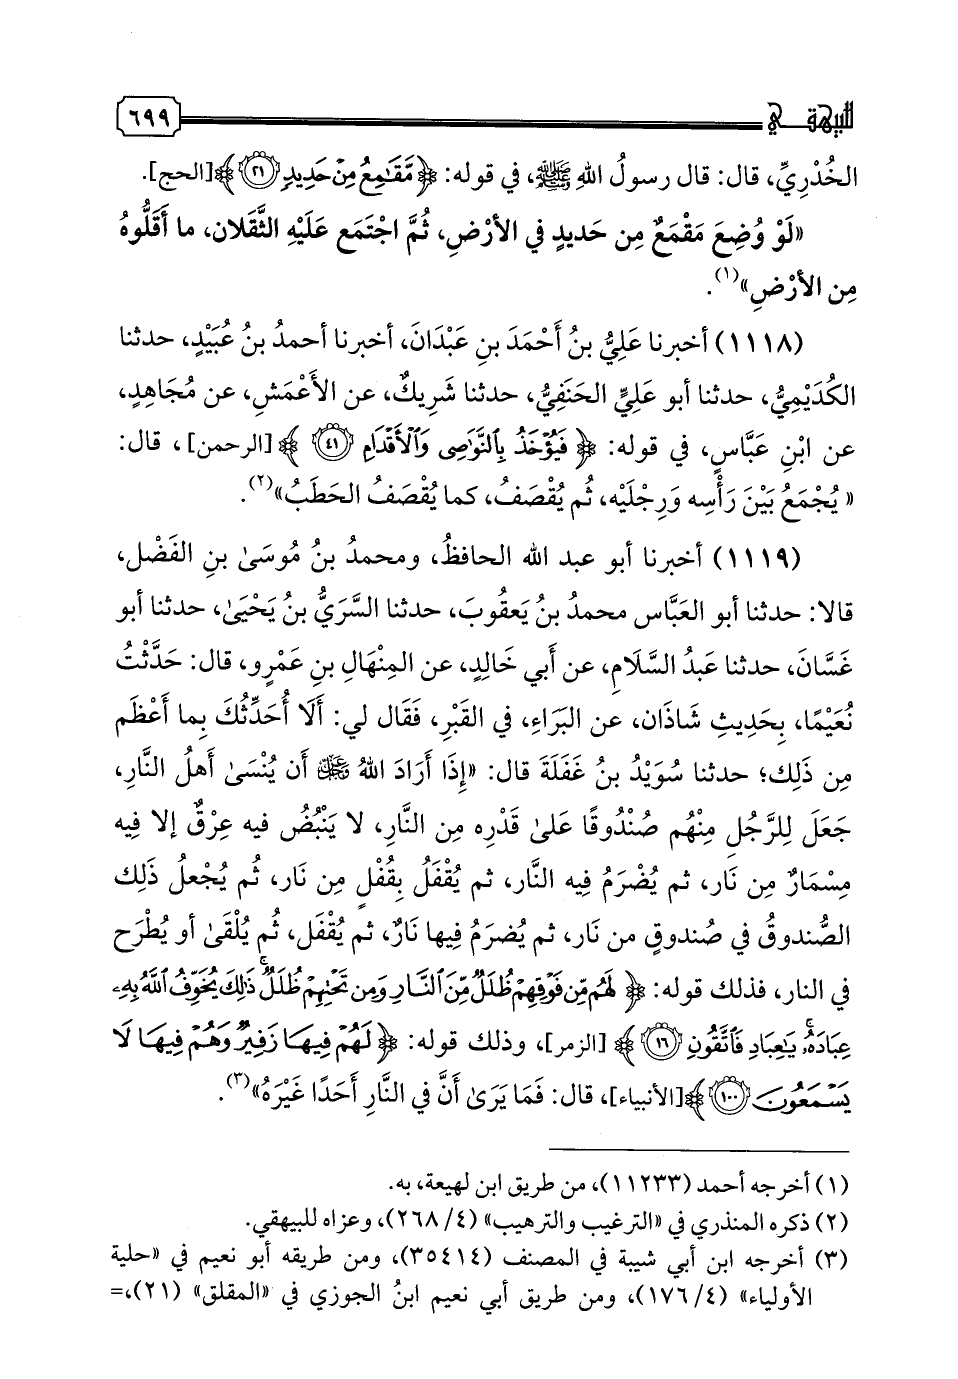 للبيهقي
٦٩٩
الخُدْرِيِّ، قال: قال رسولُ اللهِ ﷺ، في قوله: ﴿مَّقَٰمِعُ مِنْ حَدِيدٍ ۝٢١﴾ [الحج].
«لَوْ وُضِعَ مَقْمَعٌ مِن حَديدٍ في الأرْضِ، ثُمَّ اجْتَمَع عَلَيْهِ الثَّقَلان، ما أَقَلُّوهُ
مِن الأرْضِ»(١).
(١١١٨) أخبرنا عَلِيُّ بنُ أَحْمَدَ بنِ عَبْدَانَ، أخبرنا أحمدُ بنُ عُبَيْدٍ، حدثنا
الكُدَيْمِيُّ، حدثنا أبو عَلِيٍّ الحَنَفِيُّ، حدثنا شَرِيكٌ، عن الأَعْمَشِ، عن مُجَاهِدٍ،
عن ابْنِ عَبَّاسٍ، في قوله: ﴿فَيُؤْخَذُ بِالنَّوَٰصِى وَالْأَقْدَامِ ۝٤١﴾ [الرحمن]، قال:
«يُجْمَعُ بَيْنَ رَأْسِه وَرِجْلَيْه، ثُم يُقْصَفُ، كما يُقْصَفُ الحَطَبُ»(٢).
(١١١٩) أخبرنا أبو عبد الله الحافظُ، ومحمدُ بنُ مُوسَىٰ بنِ الفَضْل،
قالا: حدثنا أبو العَبَّاس محمدُ بنُ يَعقُوبَ، حدثنا السَّرَيُّ بنُ يَحْيَىٰ، حدثنا أبو
غَسَّانَ، حدثنا عَبدُ السَّلَامِ، عن أَبي خَالِدٍ، عن المِنْهَالِ بنِ عَمْرٍو، قال: حَدَّثْتُ
نُعَيْمًا، بِحَدِيثِ شَاذَان، عن البَرَاءِ، في القَبْرِ، فَقَال لي: أَلَا أُحَدِّثُكَ بِما أَعْظَم
مِن ذَلِك؛ حدثنا سُوَيْدُ بنُ غَفَلَةَ قال: «إِذَا أَرَادَ اللهُ ﷻ أَن يُنْسَىٰ أَهلُ النَّارِ،
جَعَلَ لِلرَّجُلِ مِنْهُم صُنْدُوقًا عَلىٰ قَدْرِه مِن النَّارِ، لا يَنْبُضُ فيه عِرْقٌ إلا فِيه
مِسْمَارٌ مِن نَار، ثم يُضْرَمُ فِيه النَّار، ثم يُقْفَلُ بِقُفْلٍ مِن نَار، ثُم يُجْعلُ ذَلِك
الصُّندوقُ في صُندوقٍ من نَار، ثم يُضرَمُ فِيها نَارٌ، ثم يُقْفَل، ثُم يُلْقَىٰ أو يُطْرَح
في النار، فذلك قوله: ﴿لَهُم مِّن فَوْقِهِمْ ظُلَلٌ مِّنَ النَّارِ وَمِن تَحْتِهِمْ ظُلَلٌ ۚ ذَٰلِكَ يُخَوِّفُ اللَّهُ بِهِۦ
عِبَادَهُۥ ۚ يَٰعِبَادِ فَاتَّقُونِ ۝١٦﴾ [الزمر]، وذلك قوله: ﴿لَهُمْ فِيهَا زَفِيرٌ وَهُمْ فِيهَا لَا
يَسْمَعُونَ ۝١٠٠﴾ [الأنبياء]، قال: فَمَا يَرَىٰ أَنَّ في النَّارِ أَحَدًا غَيْرَهُ»(٣).
(١) أخرجه أحمد (١١٢٣٣)، من طريق ابن لهيعة، به.
(٢) ذكره المنذري في «الترغيب والترهيب» (٤/ ٢٦٨)، وعزاه للبيهقي.
(٣) أخرجه ابن أبي شيبة في المصنف (٣٥٤١٤)، ومن طريقه أبو نعيم في «حلية
الأولياء» (٤/ ١٧٦)، ومن طريق أبي نعيم ابنُ الجوزي في «المقلق» (٢١)،=